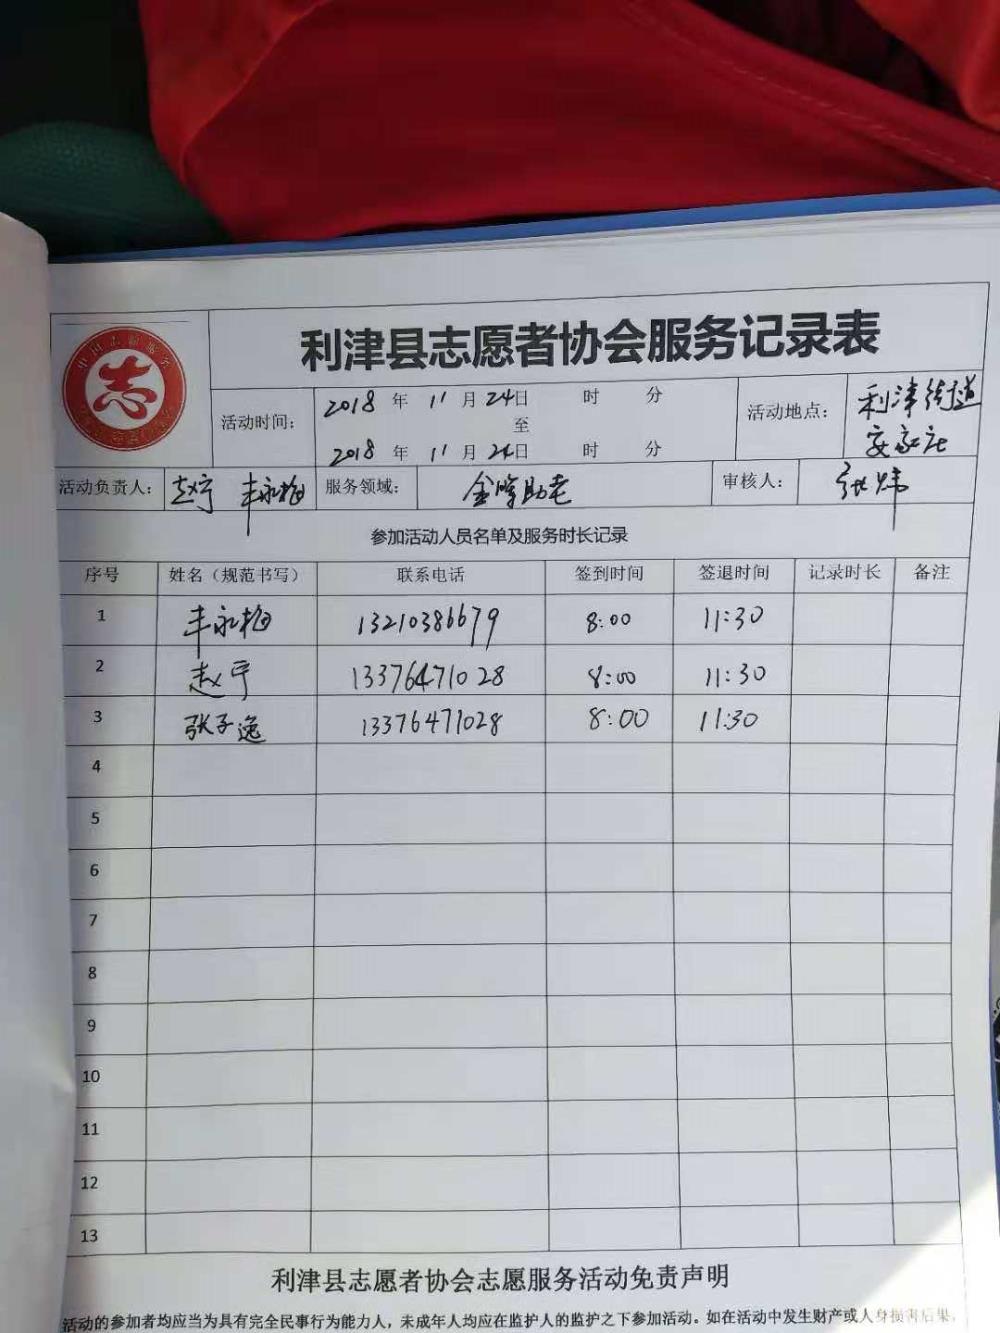 利津县志愿者协会服务记录表
活动时间： 2018 年 11 月 24日 时 分
至
2018 年 11 月 24日 时 分
活动地点： 利津街道
安家庄
活动负责人： 赵宁 丰永梅 服务领域： 金晖助老 审核人： 张炜
参加活动人员名单及服务时长记录
序号 姓名（规范书写） 联系电话 签到时间 签退时间 记录时长 备注
1 丰永梅 13210386679 8:00 11:30
2 赵宁 13376471028 8:00 11:30
3 张子逸 13376471028 8:00 11:30
4
5
6
7
8
9
10
11
12
13
利津县志愿者协会志愿服务活动免责声明
活动的参加者均应当为具有完全民事行为能力人，未成年人均应在监护人的监护之下参加活动。如在活动中发生财产或人身损害后果，